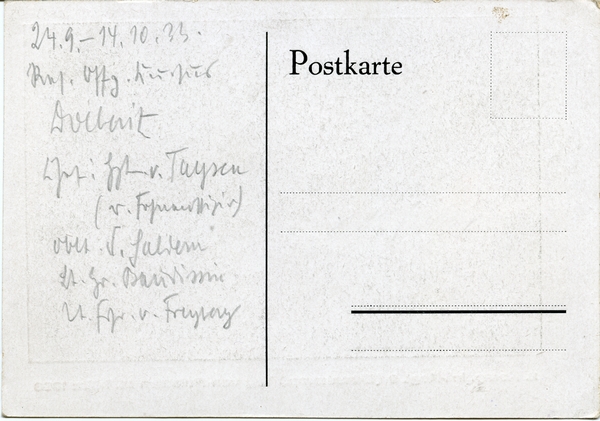 24.9.-14.10.33.
Res. Offz. Kursus
Döberitz
Chef: Hptm v. Taysen
Oblt. v. Saldern
Lt. Gr. Baudissin
Lt. Frhr. v. Freytag
Postkarte